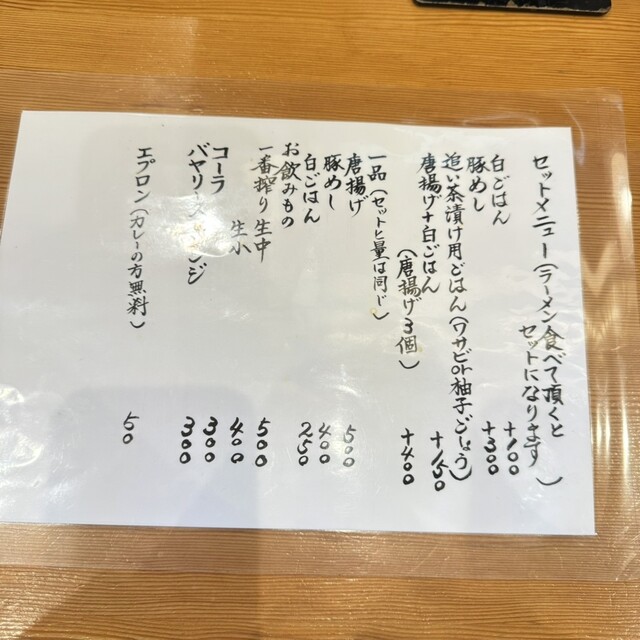 セットメニュー(ラーメン食べて頂くと
セットになります)
白ごはん +100
豚めし +300
追い茶漬け用ごはん(ワサビor柚子ごしょう) +150
唐揚げ+白ごはん +400
(唐揚げ3個)
一品(セットと量は同じ)
唐揚げ 500
豚めし 400
白ごはん 250
お飲みもの
一番搾り 生中 500
生小 400
コーラ 300
バヤリースオレンジ 300
エプロン(カレーの方無料) 50